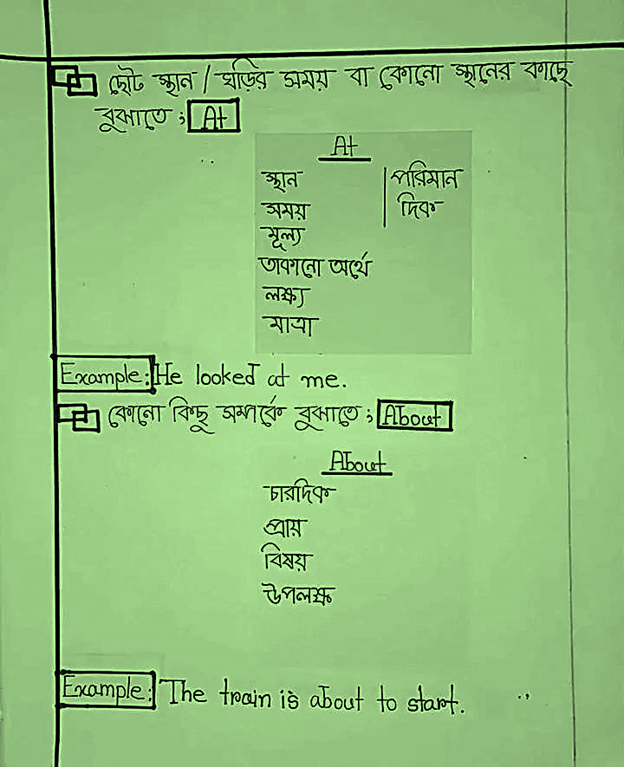 ছোট স্থান / ঘড়ির সময় বা কোনো স্থানের কাছে
বুঝাতে ; At
At
স্থান | পরিমান
সময় | দিক
মূল্য
তাকানো অর্থে
লক্ষ্য
মাত্রা
Example: He looked at me.
কোনো কিছু সম্পর্কে বুঝাতে ; About
About
চারদিক
প্রায়
বিষয়
উপলক্ষ
Example: The train is about to start.